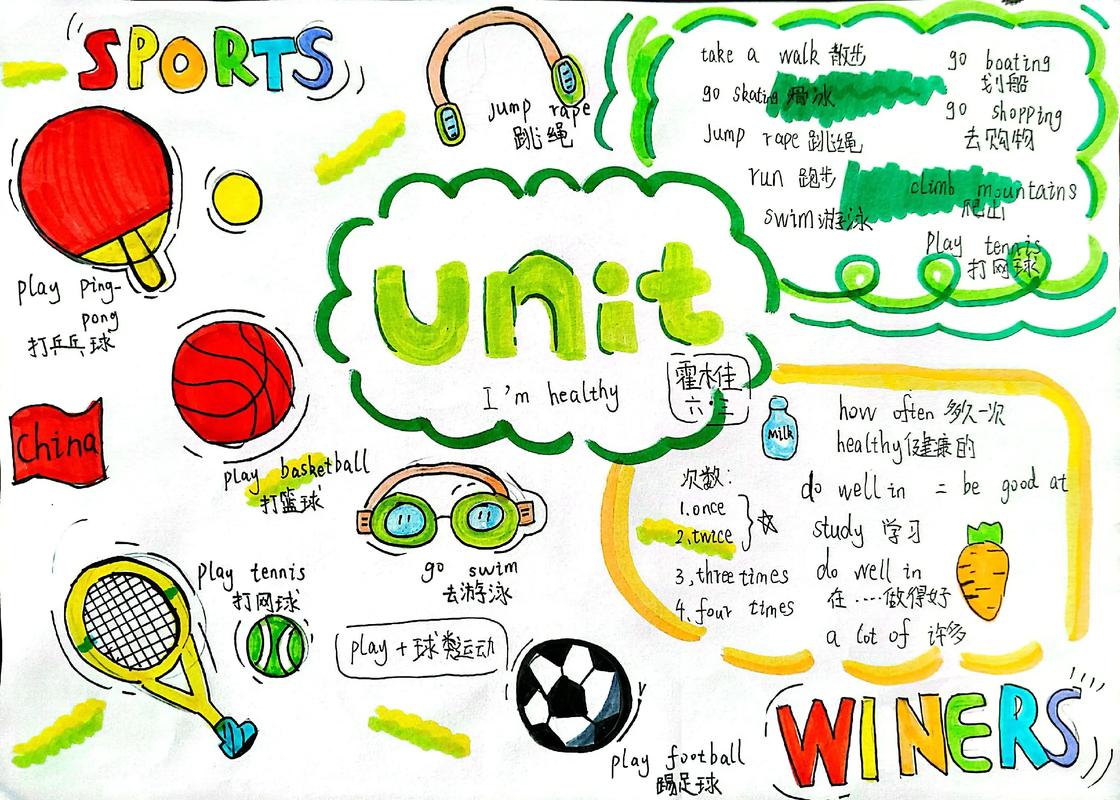 SPORTS
jump rape
跳绳
take a walk 散步
go skating 滑冰
jump rape 跳绳
run 跑步
swim 游泳
go boating
划船
go shopping
去购物
climb mountains
爬出
play tennis
打网球
play ping-
pong
打乒乓球
unit
I'm healthy
霍木佳
六·三
China
play basketball
打篮球
go swim
去游泳
play tennis
打网球
play + 球类运动
play football
踢足球
Milk
how often 多久一次
healthy 健康的
do well in = be good at
study 学习
do well in
在····做得好
a lot of 许多
次数:
1.once
2.twice
3.three times
4.four times
WINERS